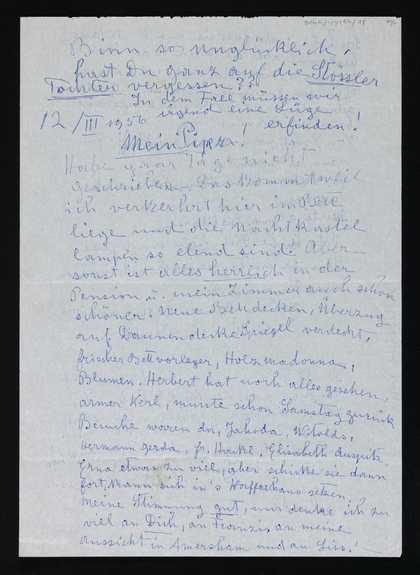 Binn so unglücklich,
hast Du ganz auf die Stössler
Tanten vergessen?!
In dem Fall müssen wir
irgend eine Lüge
erfinden!
12/III 1956
Mein Pipsz!
Habe paar Tage nicht
geschrieben. Das kommt weil
ich verkehrt hier im Bett
liege und die Nachtkastel
lampen so elend sind. Aber
sonst ist alles herrlich in der
Pension u. mein Zimmer auch schon
schöner. Neue Bettdecken, Überzug
auf Daunendecke Spiegel verdeckt,
frischer Bettvorleger, Holzmadonna,
Blumen. Herbert hat noch alles gesehen,
armer Kerl, musste schon Samstag zurück
Besuche waren da, Jahoda, Witolds,
Hermann Gerda, Elisabeth
Erna etwas zu viel, aber schicke sie dann
fort, kann sich in's Kaffeehaus setzen.
Meine Stimmung gut, nur denke ich zu
viel an Dich, an Franzis, an meine
Aussicht in Amersham und an Liss!